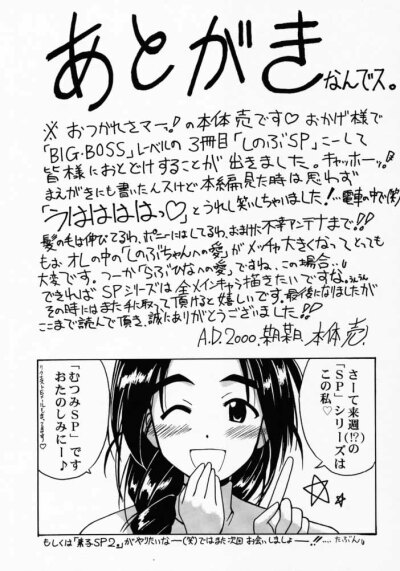 あとがき
なんでス。
※おつかれさマーッ!の本体売です♡おかげ様で
「BIG・BOSS」レーベルの3冊目「しのぶSP」こーして
皆様におとどけすることが出きました。キャッホーッ!
まえがきにも書いたんスけど本編見た時は思わず
「うははははっ♡」とうれし笑いしちゃいました!…電車の中で(笑)
髪の毛は伸びてるわ、ポニーにはしてるわ、おまけに不幸アンテナまで!!
もぉ、オレの中の「しのぶちゃんへの愛」がメッチャ大きくなってとっても
大変です。つーか「らぶひなへの愛」ですね、この場合…。
できれば SPシリーズは全メインキャラ描きたいですな。
その時にはまた手に取って頂けると嬉しいです。最後になりましたが
ここまで読んで頂き、誠にありがとうございました!!
A.D.2000. 本体 売.
さーて来週(!?)の
「SP」シリーズは
この私♡
「むつみSP」です
おたのしみにー♪
もしくは「素子SP2」がやりたいなー(笑)ではまた次回お会いしましょー!!…たぶん。